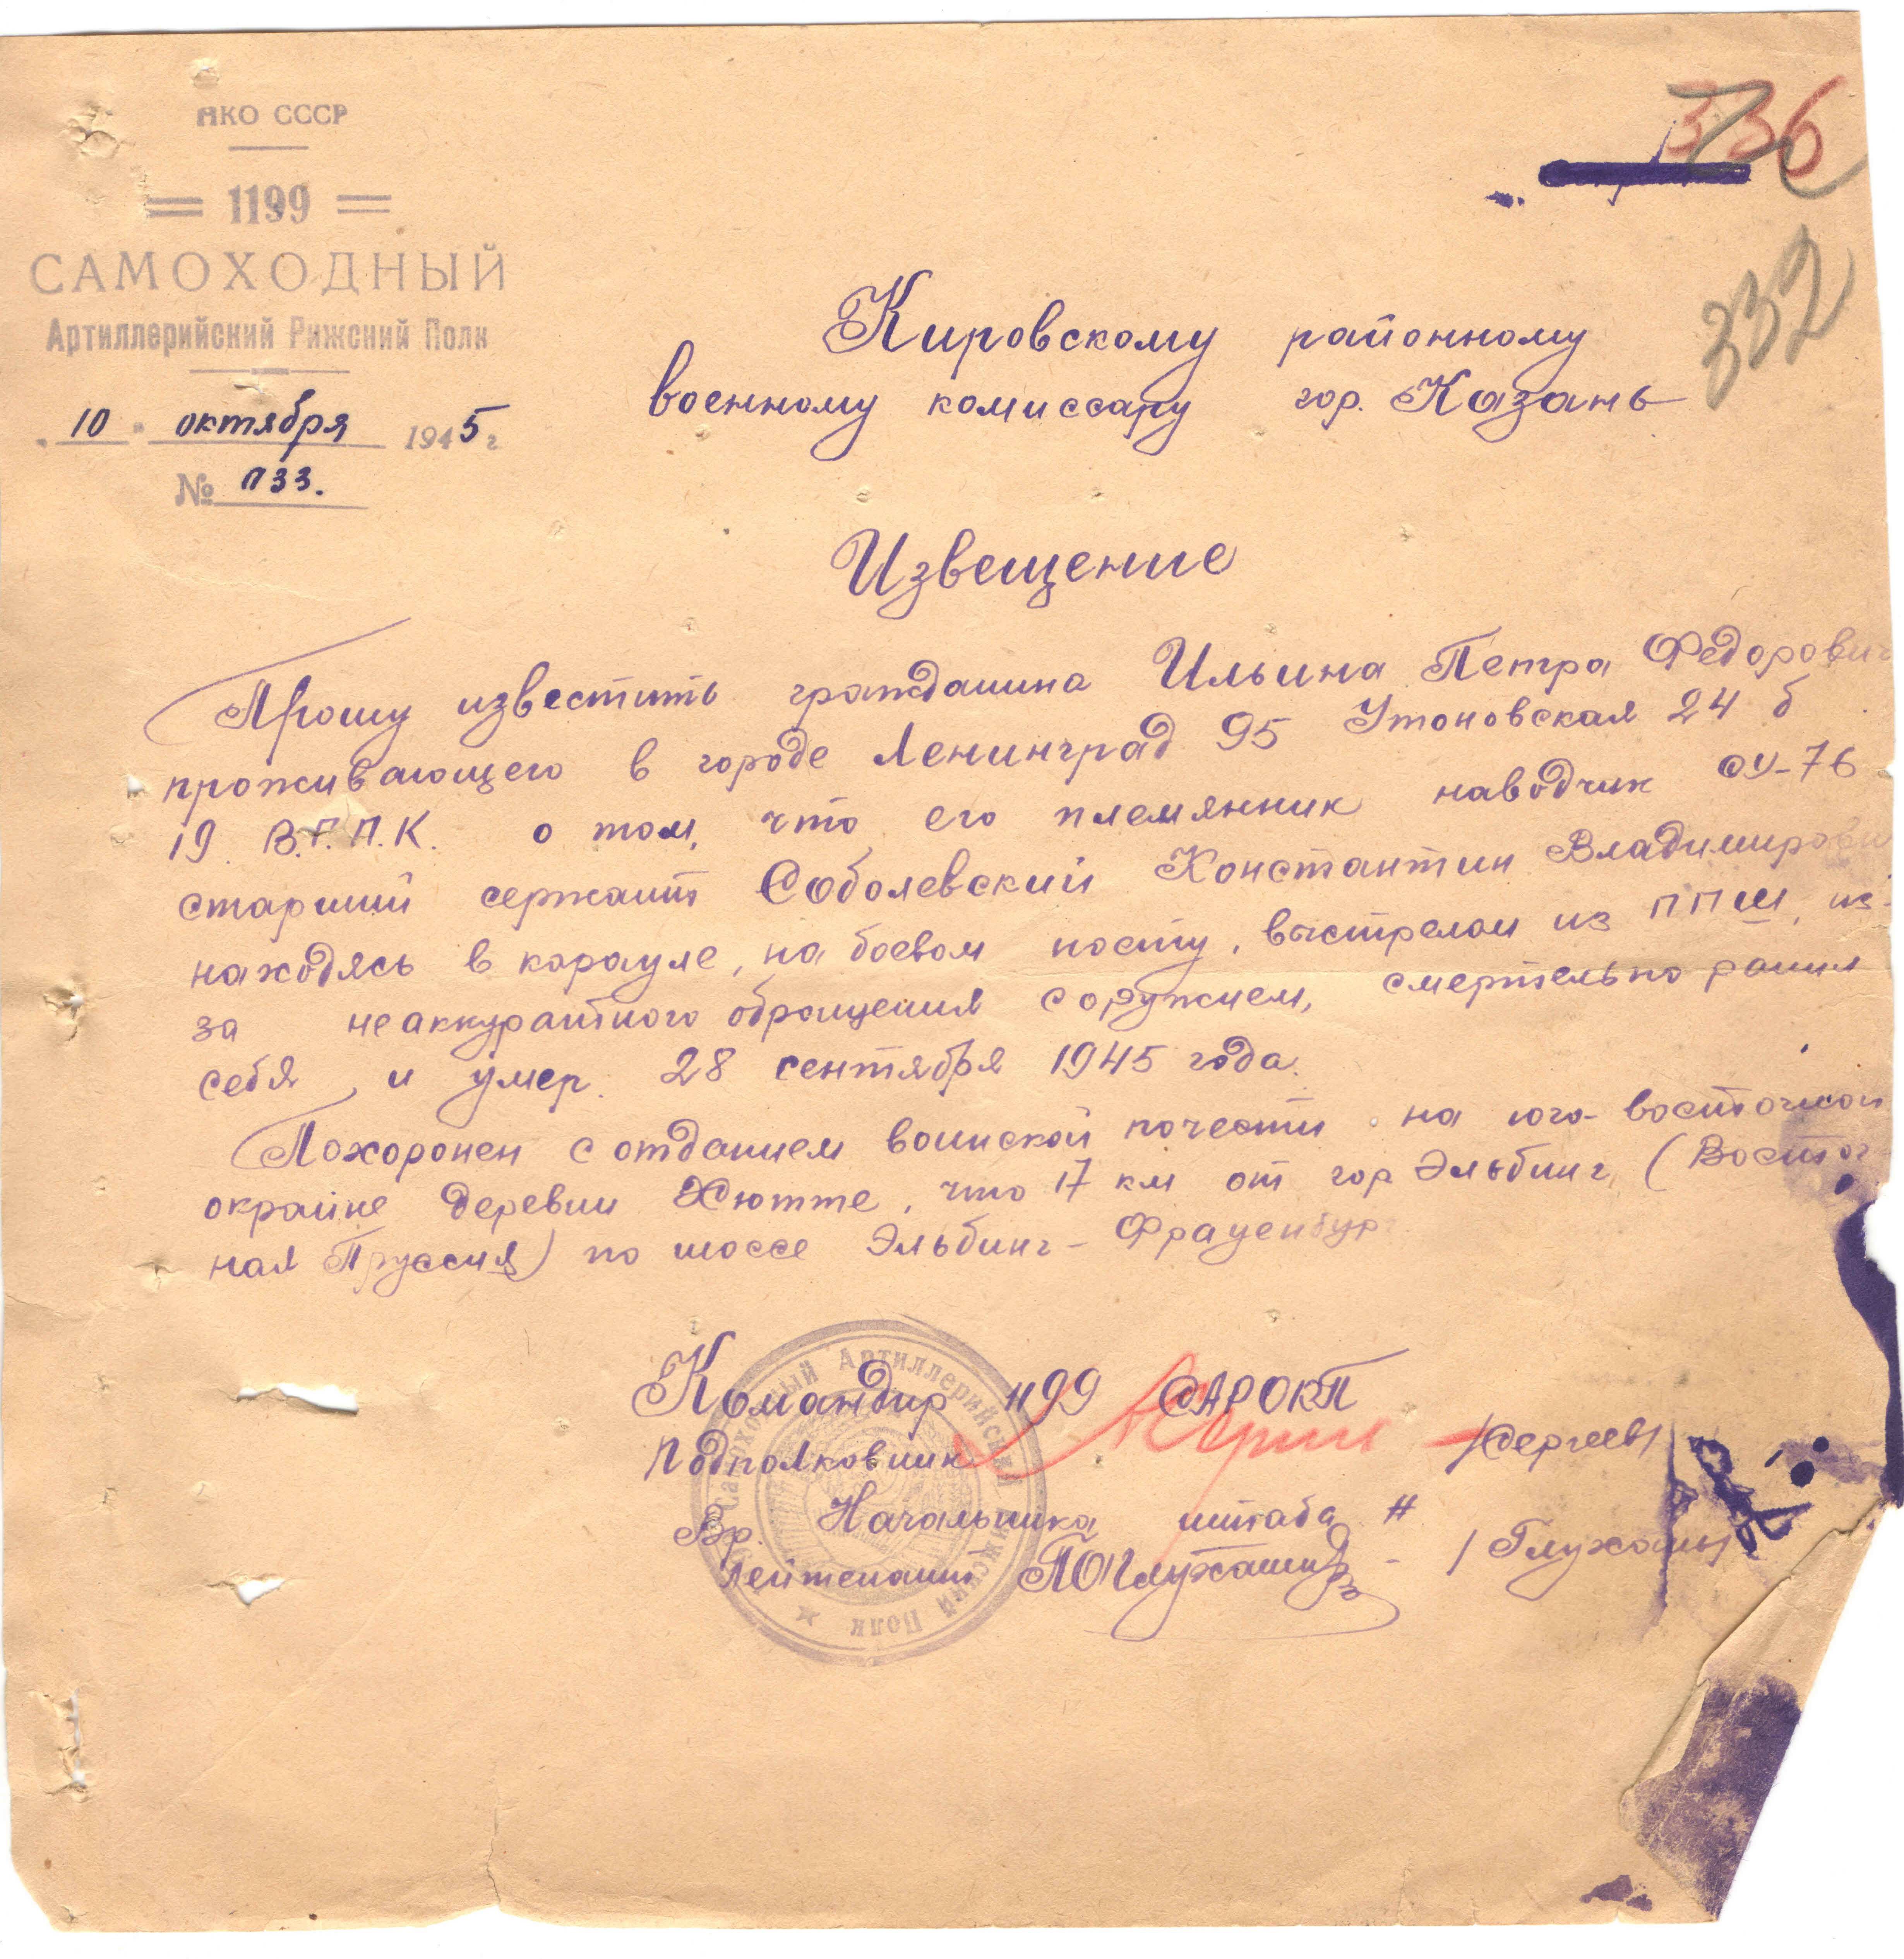 НКО СССР
1199
САМОХОДНЫЙ
Артиллерийский Рижский Полк
„10" октября 1945 г
№ 1733.
336
332
Кировскому районному
военному комиссару гор. Казань
Извещение
Прошу известить гражданина Ильина Петра Федорович
проживающего в городе Ленинград 95 Утоновская 24 б
19 В.Г.П.К. о том, что его племянник наводчик СУ-76
старший сержант Соболевский Константин Владимирови
находясь в карауле, на боевом посту, выстрелом из ППШ, из-
за неаккуратного обращения с оружием, смертельно ранил
себя и умер. 28 сентября 1945 года.
Похоронен с отданием воинской почести на юго-восточной
окраине деревни Хютте, что 17 км от гор Эльбинг (Восточ
ная Пруссия) по шоссе Эльбинг - Фрауенбург
Командир 1199 САРОКП
Подполковник /Сергеев/
Вр. Начальника штаба
лейтенант
Самоходный Артиллерийский Рижский Полк